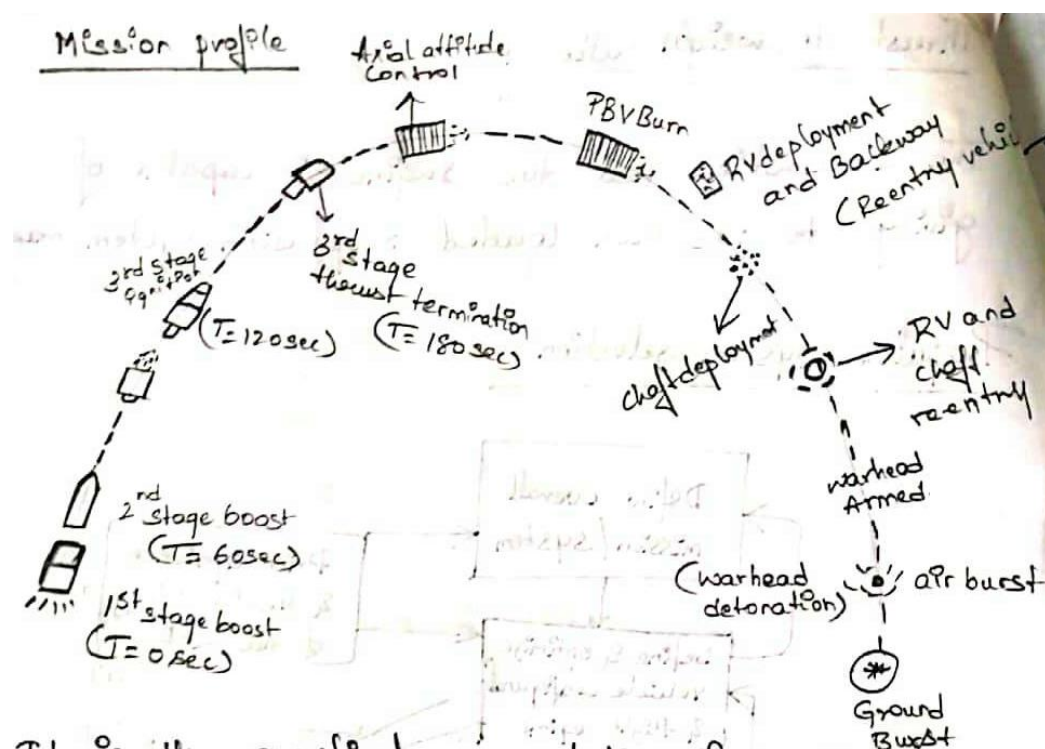 Mission profile
Axial attitude
Control
PBV Burn
RV deployment
and Backway
(Reentry vehicl
3rd stage
(T=120sec)
3rd
stage
thrust termination
(T=180sec)
chaff deploymet
RV and
chaff
re-entry
warhead
Armed
2nd
stage boost
(T=60sec)
1st
stage boost
(T=0sec)
(warhead
detonation)
air burst
Ground
Burst